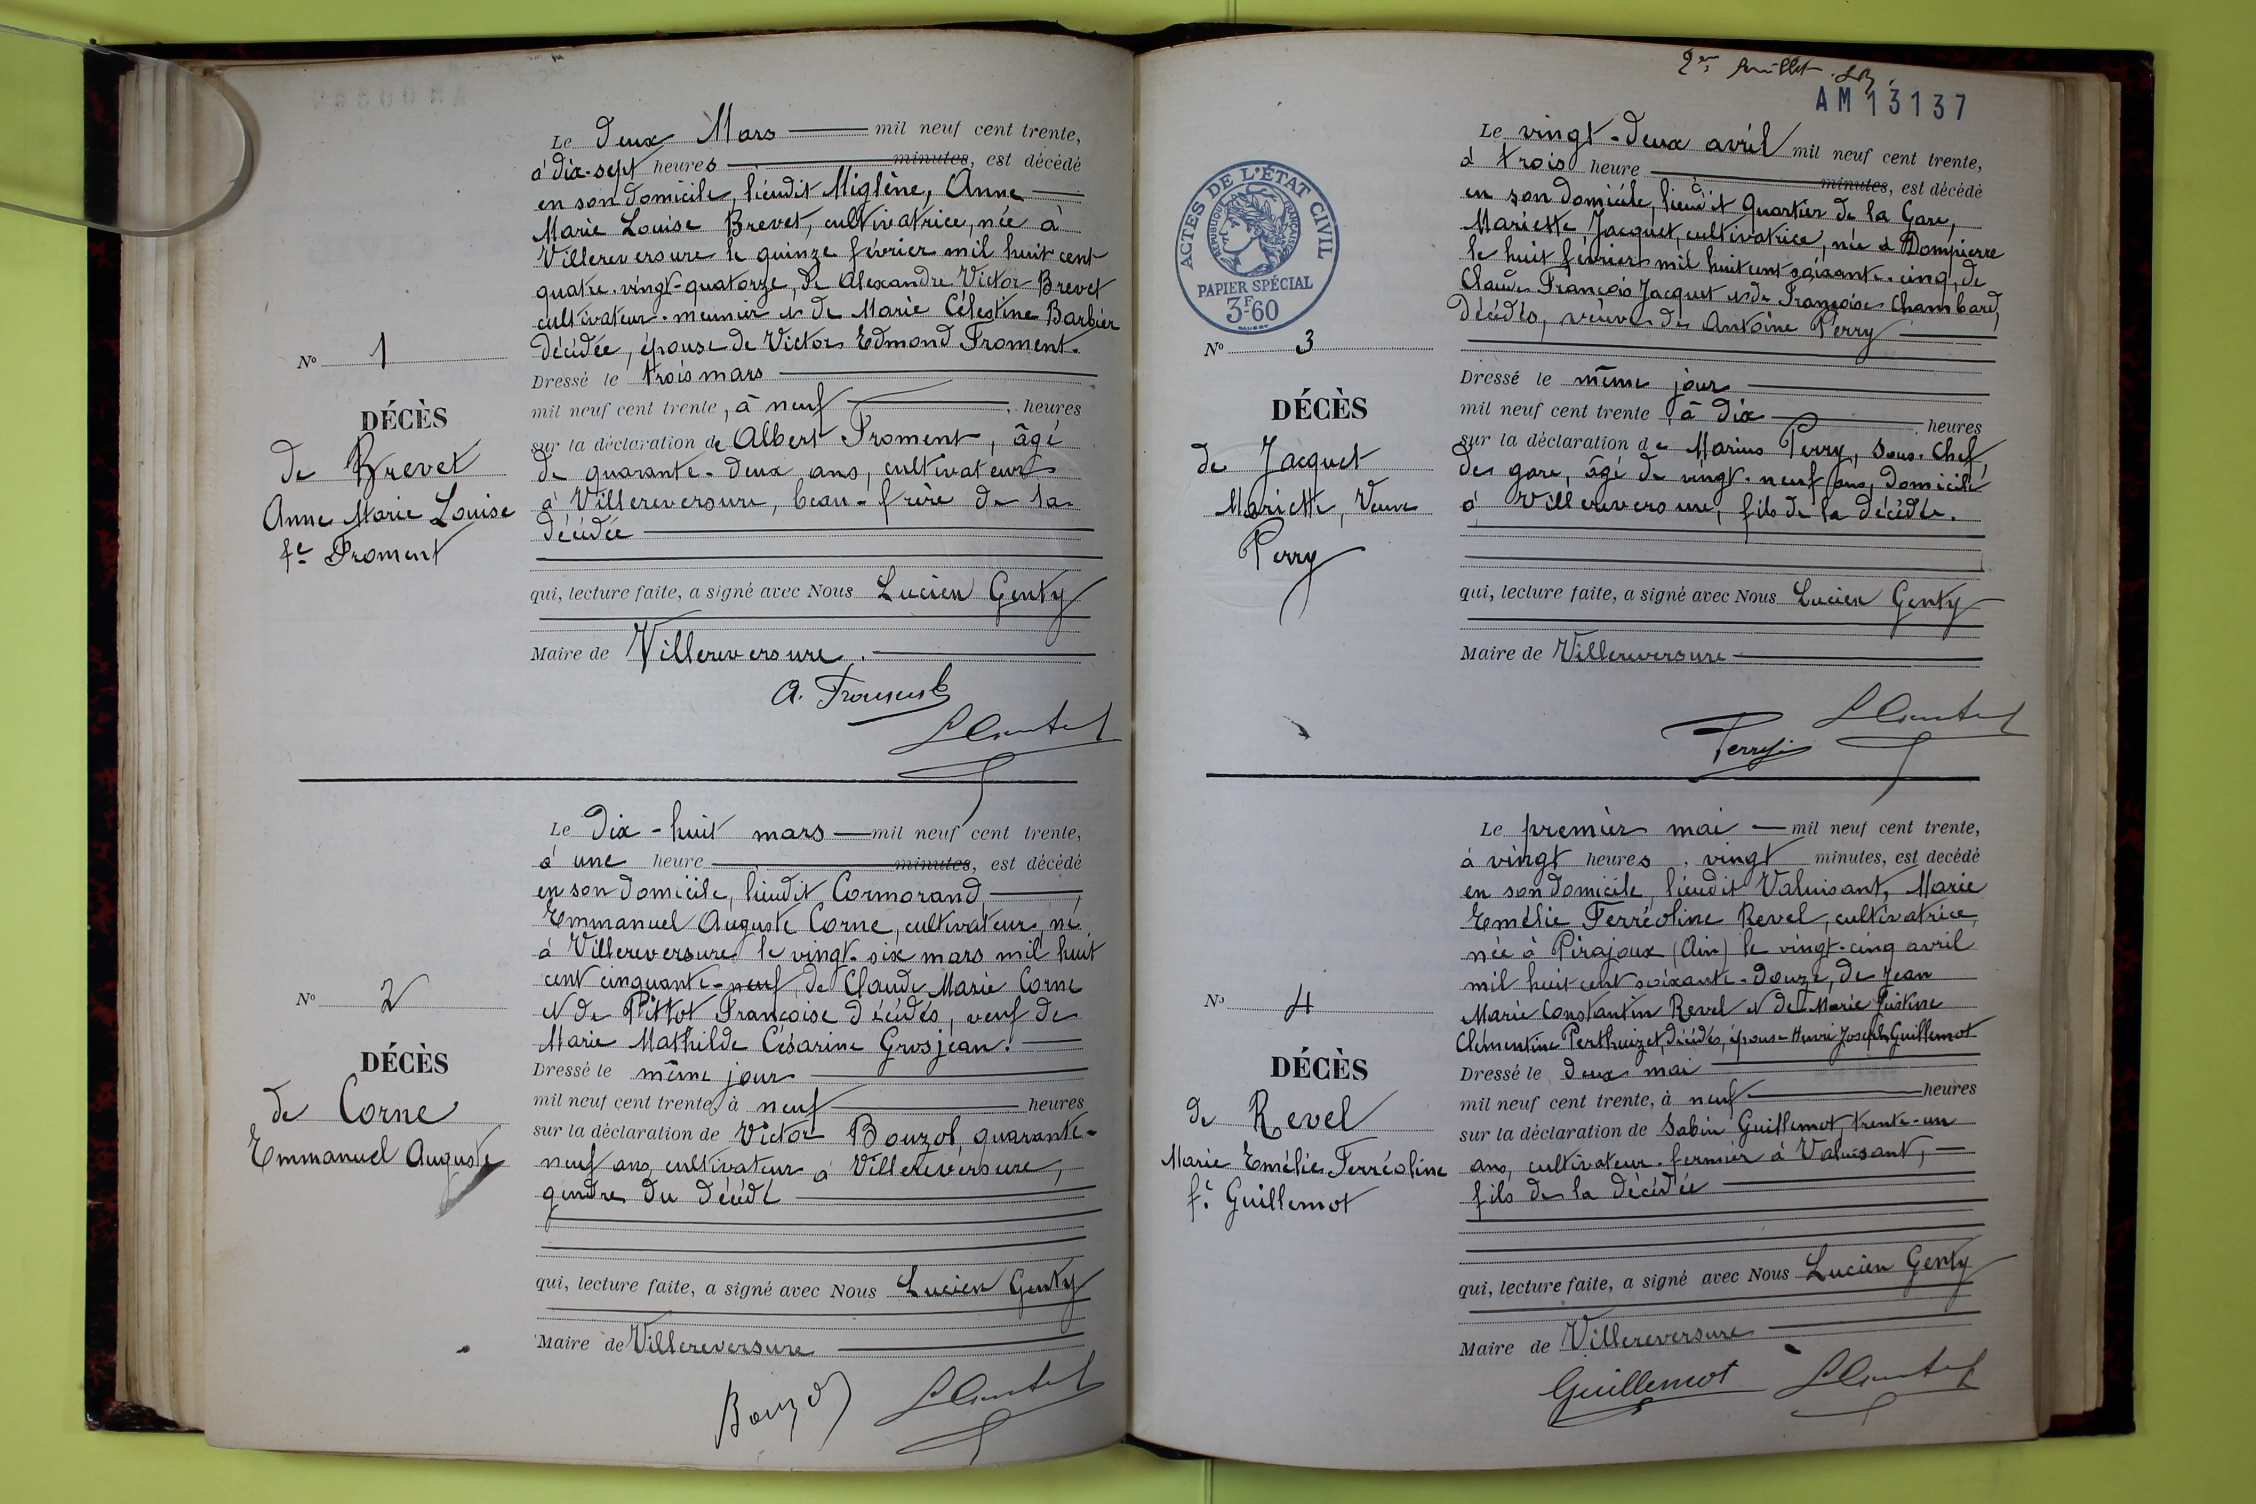 Le Deux Mars mil neuf cent trente,
à dix-sept heures minutes, est décédé
en son domicile, lieudit Miglène, Anne
Marie Louise Brevet, cultivatrice, née à
Villereversure le quinze février mil huit cent
quatre-vingt-quatorze, de Alexandre Victor Brevet
cultivateur-meunier et de Marie Célestine Barbier
décédée, épouse de Victor Edmond Froment.
Nº 1
Dressé le trois mars
mil neuf cent trente, à neuf heures
DÉCÈS
sur la déclaration de Albert Froment, âgé
de Brevet
de quarante-deux ans, cultivateur
Anne Marie Louise
à Villereversure, beau-frère de la
fe Froment
décédée
qui, lecture faite, a signé avec Nous Lucien Genty
Maire de Villereversure.
A. Froment
Le Dix-huit mars mil neuf cent trente,
à une heure minutes, est décédé
en son domicile, lieudit Cormorand,
Emmanuel Auguste Corne, cultivateur, né
à Villereversure le vingt-six mars mil huit
cent cinquante-neuf, de Claude Marie Corne
Nº 2
et de Pittot Françoise décédés, veuf de
Marie Mathilde Césarine Grosjean.
DÉCÈS
Dressé le même jour
de Corne
mil neuf cent trente, à neuf heures
Emmanuel Auguste
sur la déclaration de Victor Bouzol, quarante-
neuf ans, cultivateur à Villereversure,
gendre du décédé
qui, lecture faite, a signé avec Nous Lucien Genty
Maire de Villereversure
Bouzol
2me feuillet
AM13137
ACTES DE L'ÉTAT CIVIL
RÉPUBLIQUE FRANÇAISE
PAPIER SPÉCIAL
3F60
Le vingt-deux avril mil neuf cent trente,
à trois heure minutes, est décédé
en son domicile, lieudit Quartier de la Gare,
Mariette Jacquet, cultivatrice, née à Dompierre
le huit février mil huit cent soixante-cinq, de
Claude François Jacquet et de Françoise Chambard,
décédés, veuve de Antoine Perry
Nº 3
Dressé le même jour
DÉCÈS
mil neuf cent trente, à dix heures
de Jacquet
sur la déclaration de Marius Perry, sous-chef
de gare, âgé de vingt-neuf ans, domicilié
Mariette, Veuve
à Villereversure, fils de la décédée.
Perry
qui, lecture faite, a signé avec Nous Lucien Genty
Maire de Villereversure
Perry
Le premier mai mil neuf cent trente,
à vingt heures, vingt minutes, est décédé
en son domicile, lieudit Valuisant, Marie
Emélie Ferréoline Revel, cultivatrice,
née à Pirajoux (Ain) le vingt-cinq avril
mil huit cent soixante-douze, de Jean
Nº 4
Marie Constantin Revel et de Marie Justine
Clémentine Perthuizet, décédés, épouse Henri Joseph Guillemot
DÉCÈS
Dressé le deux mai
de Revel
mil neuf cent trente, à neuf heures
Marie Emélie Ferréoline
sur la déclaration de Sabin Guillemot, trente-un
fe Guillemot
ans, cultivateur-fermier à Valuisant,
fils de la décédée
qui, lecture faite, a signé avec Nous Lucien Genty
Maire de Villereversure
Guillemot